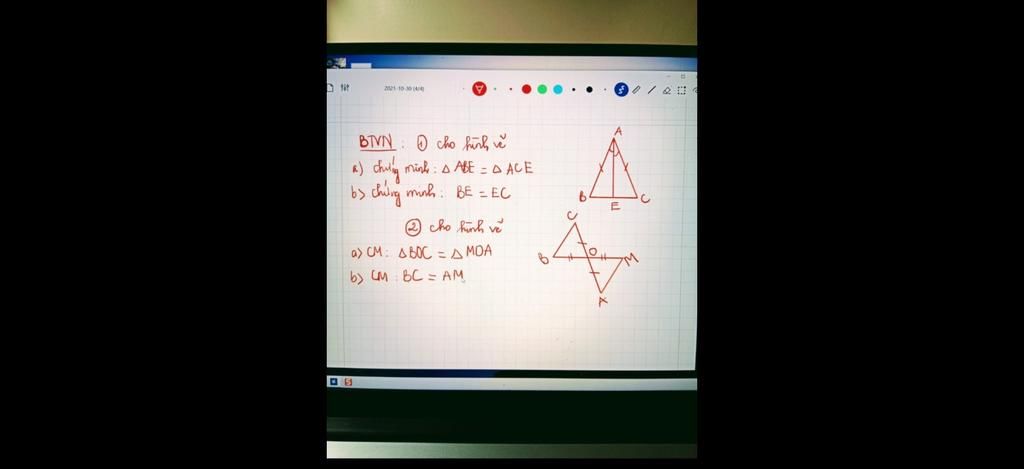 2021-10-30 (4/4)
BTVN : ① cho hình vẽ
a) chứng minh : △ ABE = △ ACE
b) chứng minh : BE = EC
② cho hình vẽ
a) CM : △ BOC = △ MOA
b) CM : BC = AM
A
B
E
C
C
B
O
M
A